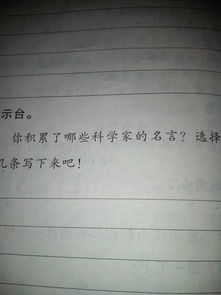 示台。
你积累了哪些科学家的名言?选择
几条写下来吧!